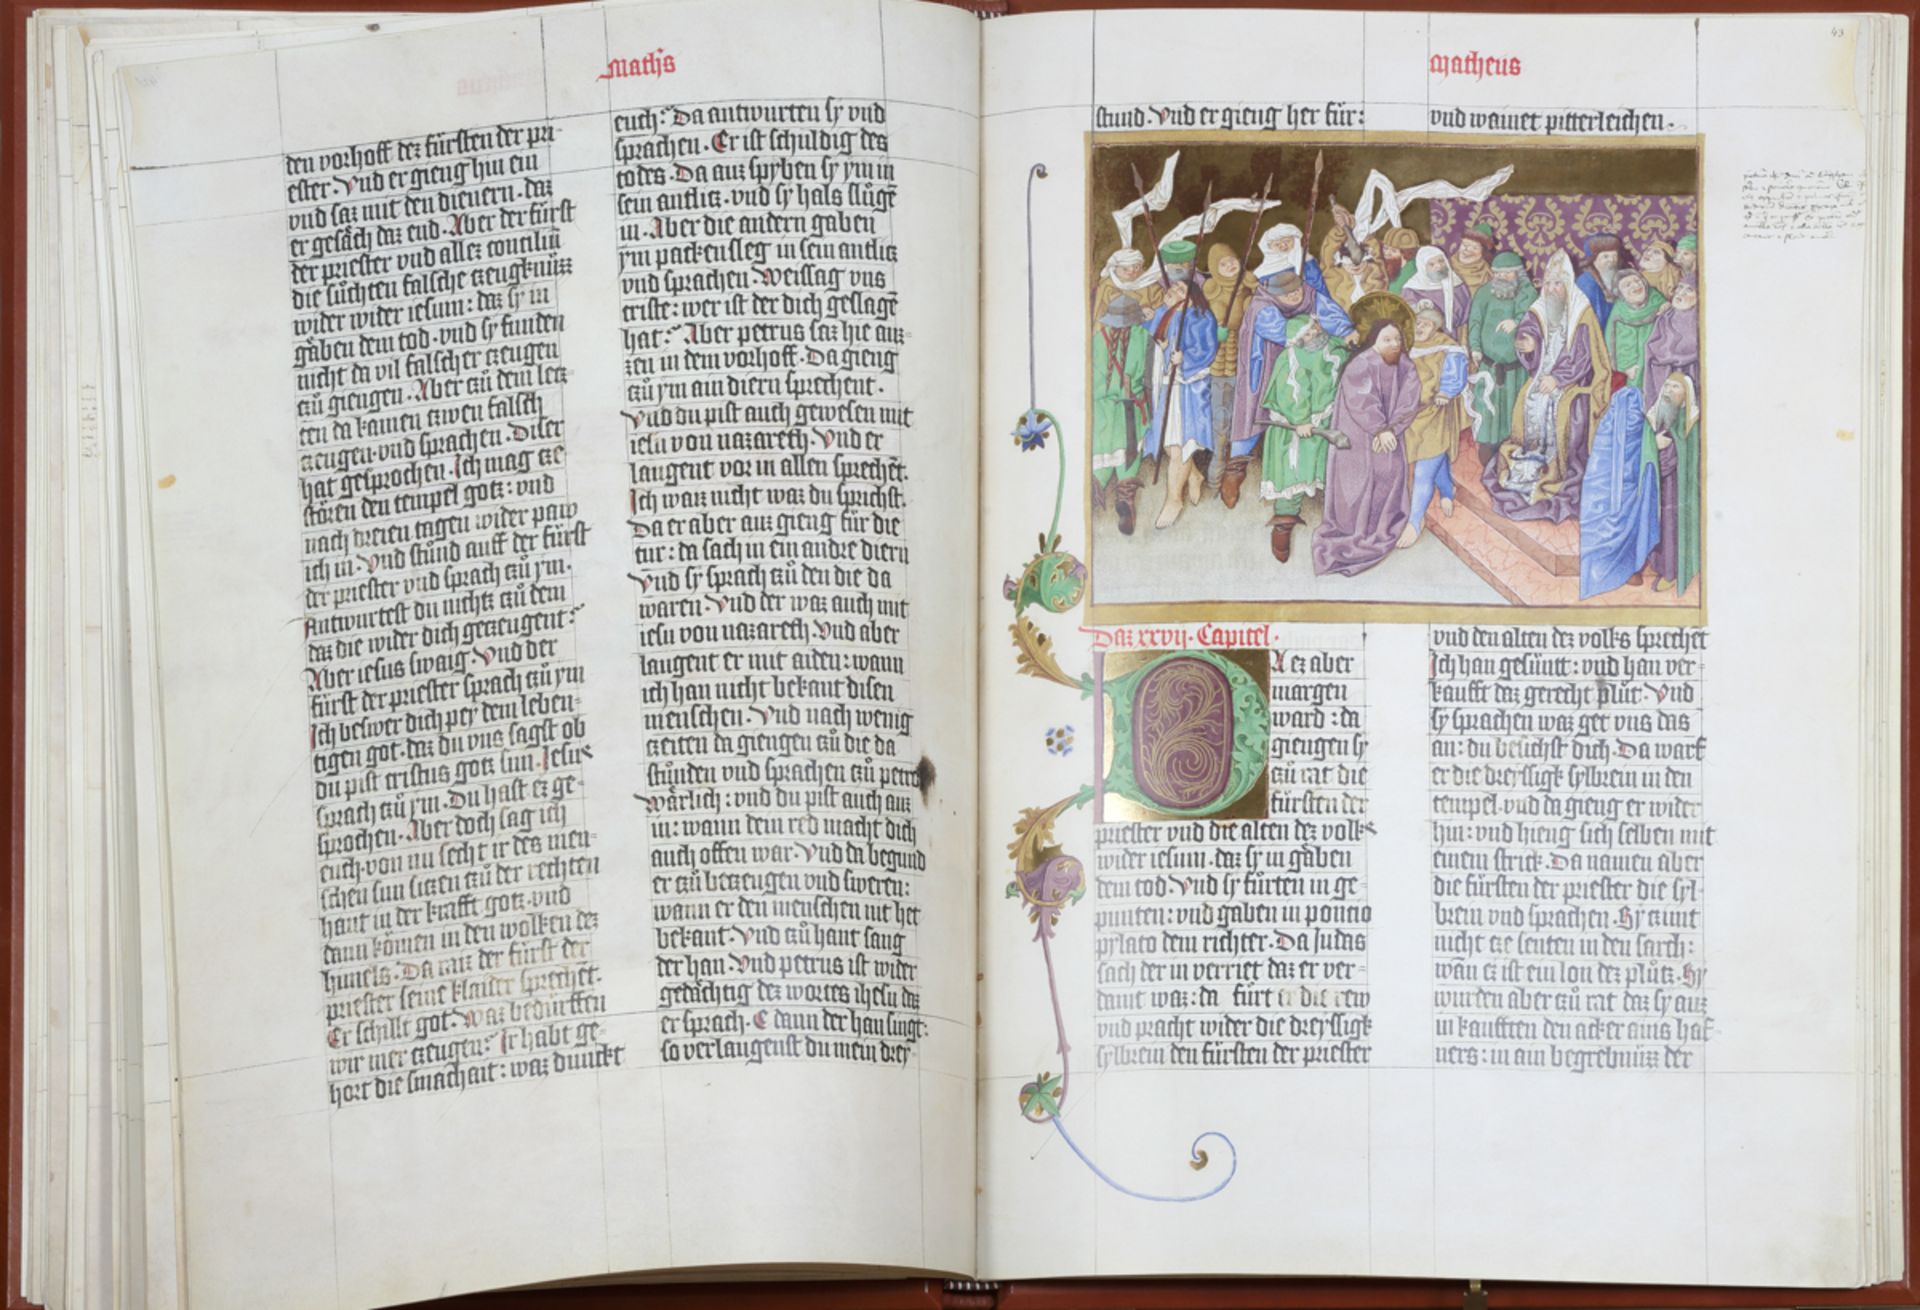 Maths
den vorhoff dez fürsten der pri-
ester. Vnd er gieng hin ein
vnd saz mit den dienern. daz
er gesäch daz end. Aber der fürst
der priester vnd allez conciliū
die sůchten falsche czeugknüzz
wider wider iesum: daz sy in
gäben dem tod. vnd sy funden
nicht da vil falscher czeugen
czů giengen. Aber czů dem lecz-
ten da kamen czwen falsch
czeugen. vnd sprachen. Diser
hat gesprochen. Ich mag cze
stören den tempel gotz: vnd
nach dreien tagen wider paw
ich in. Vnd stůnd auff der fürst
der priester vnd sprach czů ym.
Antwurtest du nichtz czů dem
daz die wider dich geczeugent?
Aber iesus swaig. Vnd der
fürst der priester sprach czů ym
Ich beswer dich pey dem leben-
tigen got. daz du vns sagst ob
du pist cristus gotz sun. Iesus
sprach czů ym. Du hast ez ge-
sprochen. Aber doch sag ich
euch. von nu secht ir des men-
schen sun siczen czů der rechten
hant in der krafft gotz. vnd
dann kömen in den wolken dez
himels. Da raiz der fürst der
priester seine klaider sprechēt.
Er schillt got. Waz bedürffen
wir mer czeugen? Ir habt ge-
hort die smachait: waz dunckt
euch? Da antwurten sy vnd
sprachen. Er ist schuldig des
todes. Da auz spyben sy ym in
sein antlicz. vnd sy hals slůgē
in. Aber die andern gaben
ym packensleg in sein antlicz
vnd sprachen. Weissag vns
criste: wer ist der dich geslagē
hat? Aber petrus saz hie auz-
zen in dem vorhoff. Da gieng
czů ym ain diern sprechent.
Vnd du pist auch gewesen mit
iesu von nazareth. Vnd er
laugent vor in allen sprechēt.
Ich waiz nicht waz du sprichst.
Da er aber auz gieng für die
tür: da sach in ein andre diern
Vnd sy sprach czů den die da
waren. Vnd der waz auch mit
iesu von nazareth. Vnd aber
laugent er mit aiden: wann
ich han nicht bekant disen
menschen. Vnd nach wenig
czeiten da giengen czů die da
stůnden vnd sprachen czů petro
Wärlich: vnd du pist auch auz
in: wann dein red macht dich
auch offen war. Vnd da begund
er czů beczeugen vnd sweren:
wann er den menschen nit het
bekant. Vnd czů hant sang
der han. Vnd petrus ist wider
gedächtig dez wortes ihesu daz
er sprach. E dann der han singt:
so verlaugenst du mein drey-
Matheus
43
stund. Vnd er gieng her für:
vnd wainet pitterleichen.
Daz xxvii. Capitel.
D A ez aber
margen
ward: da
giengen sy
czů rat die
fürsten der
priester vnd die alten dez volks
wider iesum. daz sy in gäben
dem tod. Vnd sy fürten in ge-
punten: vnd gaben in poncio
pylato dem richter. Da Judas
sach der in verriet daz er ver-
damt waz: da fürt er die rew
vnd pracht wider die dreyssigk
sylbrein den fürsten der priester
vnd den alten dez volks sprechēt
Ich han gesüntt: vnd han ver-
kaufft daz gerecht plůt. Vnd
sy sprachen waz get vns das
an: du besichst dich. Da warf
er die dreyssigk sylbrein in den
tempel. vnd da gieng er wider
hin: vnd hieng sich selben mit
einem strick. Da namen aber
die fürsten der priester die syl-
brein vnd sprachen. Sy czimt
nicht cze senten in den sarch:
wān ez ist ein lon dez plůtz. Sy
wurden aber czů rat daz sy auz
in kaufften den acker ains haf-
ners: in ain begrebnüzz der